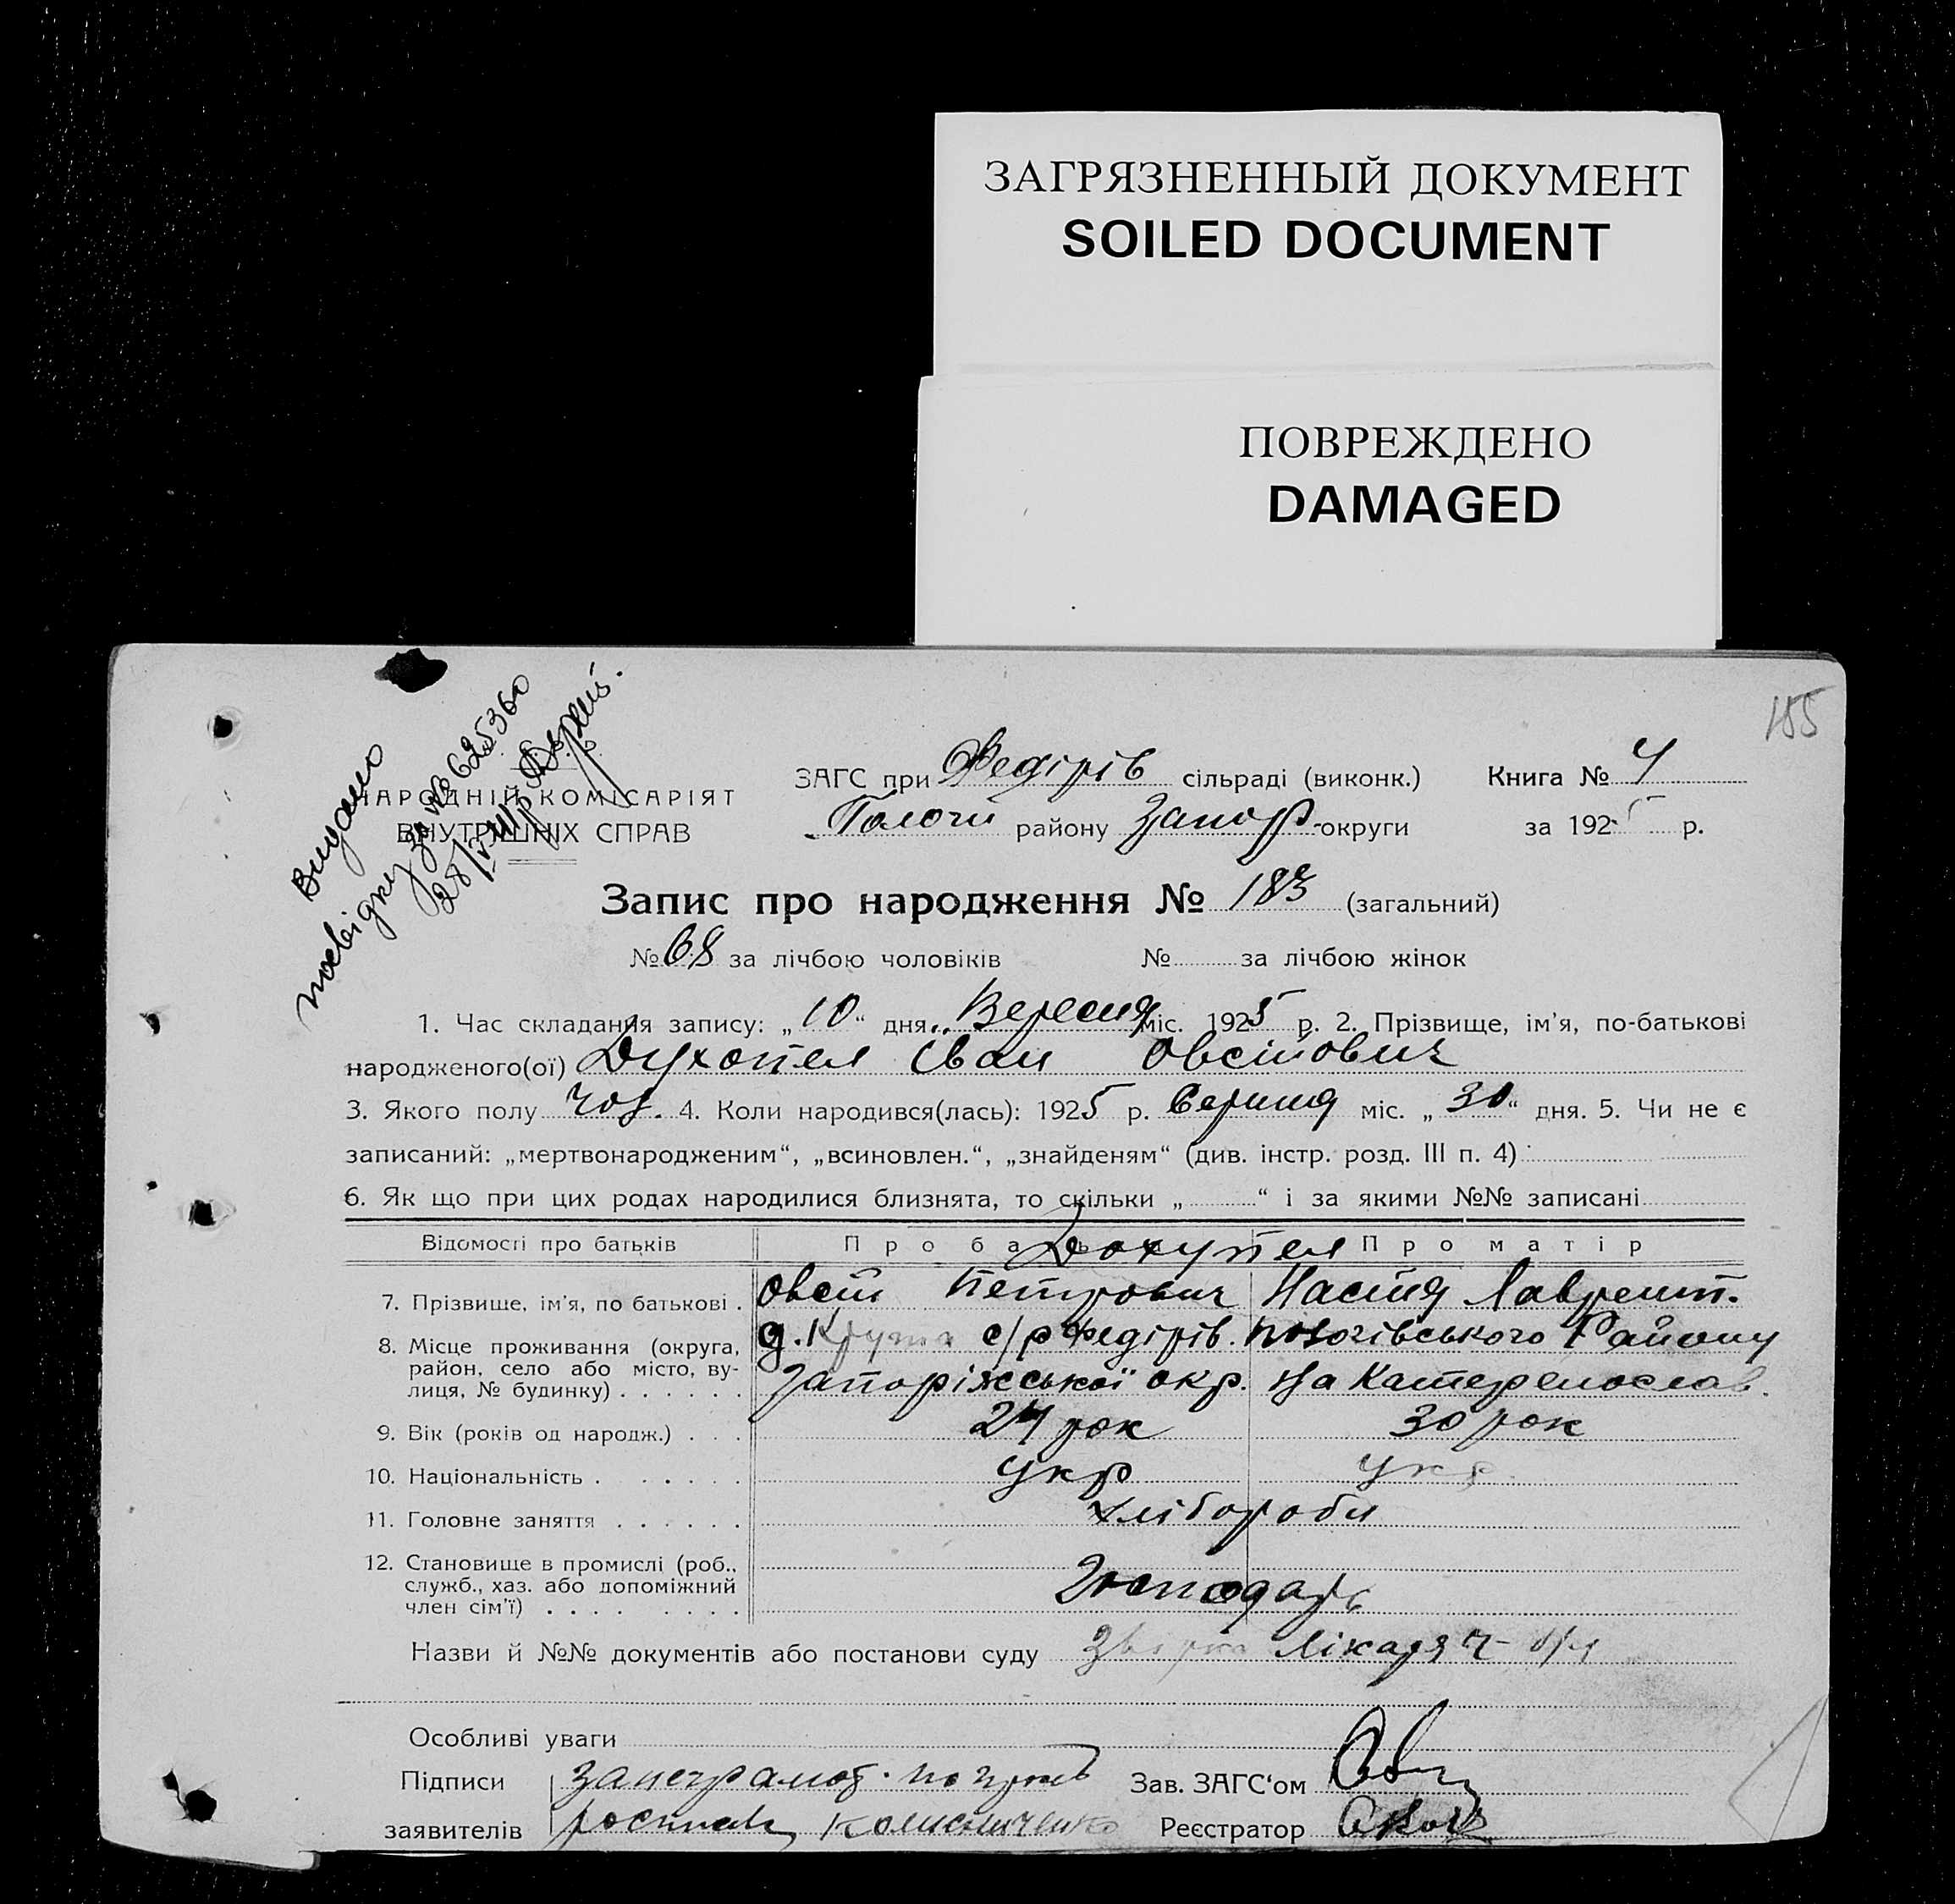 ЗАГРЯЗНЕННЫЙ ДОКУМЕНТ
SOILED DOCUMENT
ПОВРЕЖДЕНО
DAMAGED
185
Видано
посвідку за № 625360
28/
НАРОДНІЙ КОМІСАРІЯТ
ВНУТРІШНІХ СПРАВ
ЗАГС при Федірів сільраді (виконк.) Книга № 4
району Запор. округи за 1925 р.
Запис про народження № 183 (загальний)
№ 68 за лічбою чоловіків № за лічбою жінок
1. Час складання запису: „10“ дня Вересня міс. 1925 р. 2. Прізвище, ім’я, по-батькові
народженого(ої) Духопел Іван Овсійович
3. Якого полу чол. 4. Коли народився(лась): 1925 р. Серпня міс. „30“ дня. 5. Чи не є
записаний: „мертвонародженим“, „всиновлен.“, „знайденям“ (див. інстр. розд. III п. 4)
6. Як що при цих родах народилися близнята, то скільки „ “ і за якими №№ записані
Відомості про батьків Про батька Про матір
Дохупел
7. Прізвище, ім’я, по батькові . Овсій Петрович Настя Лаврент.
8. Місце проживання (округа, район, село або місто, вулиця, № будинку) . . . . . . д. с/р Федірів. району
Запоріжської окр. на Катеренослав.
9. Вік (років од народж.) . . . 24 рок 30 рок
10. Національність . . . . . . . укр укр
11. Головне заняття . . . . . . хлібороби
12. Становище в промислі (роб., служб., хаз. або допоміжний член сім’ї) . . . . . . . . . Господарь
Назви й №№ документів або постанови суду лікаря
Особливі уваги
Підписи за неграмот.
заявителів роспис Колісниченко
Зав. ЗАГС‘ом
Реєстратор